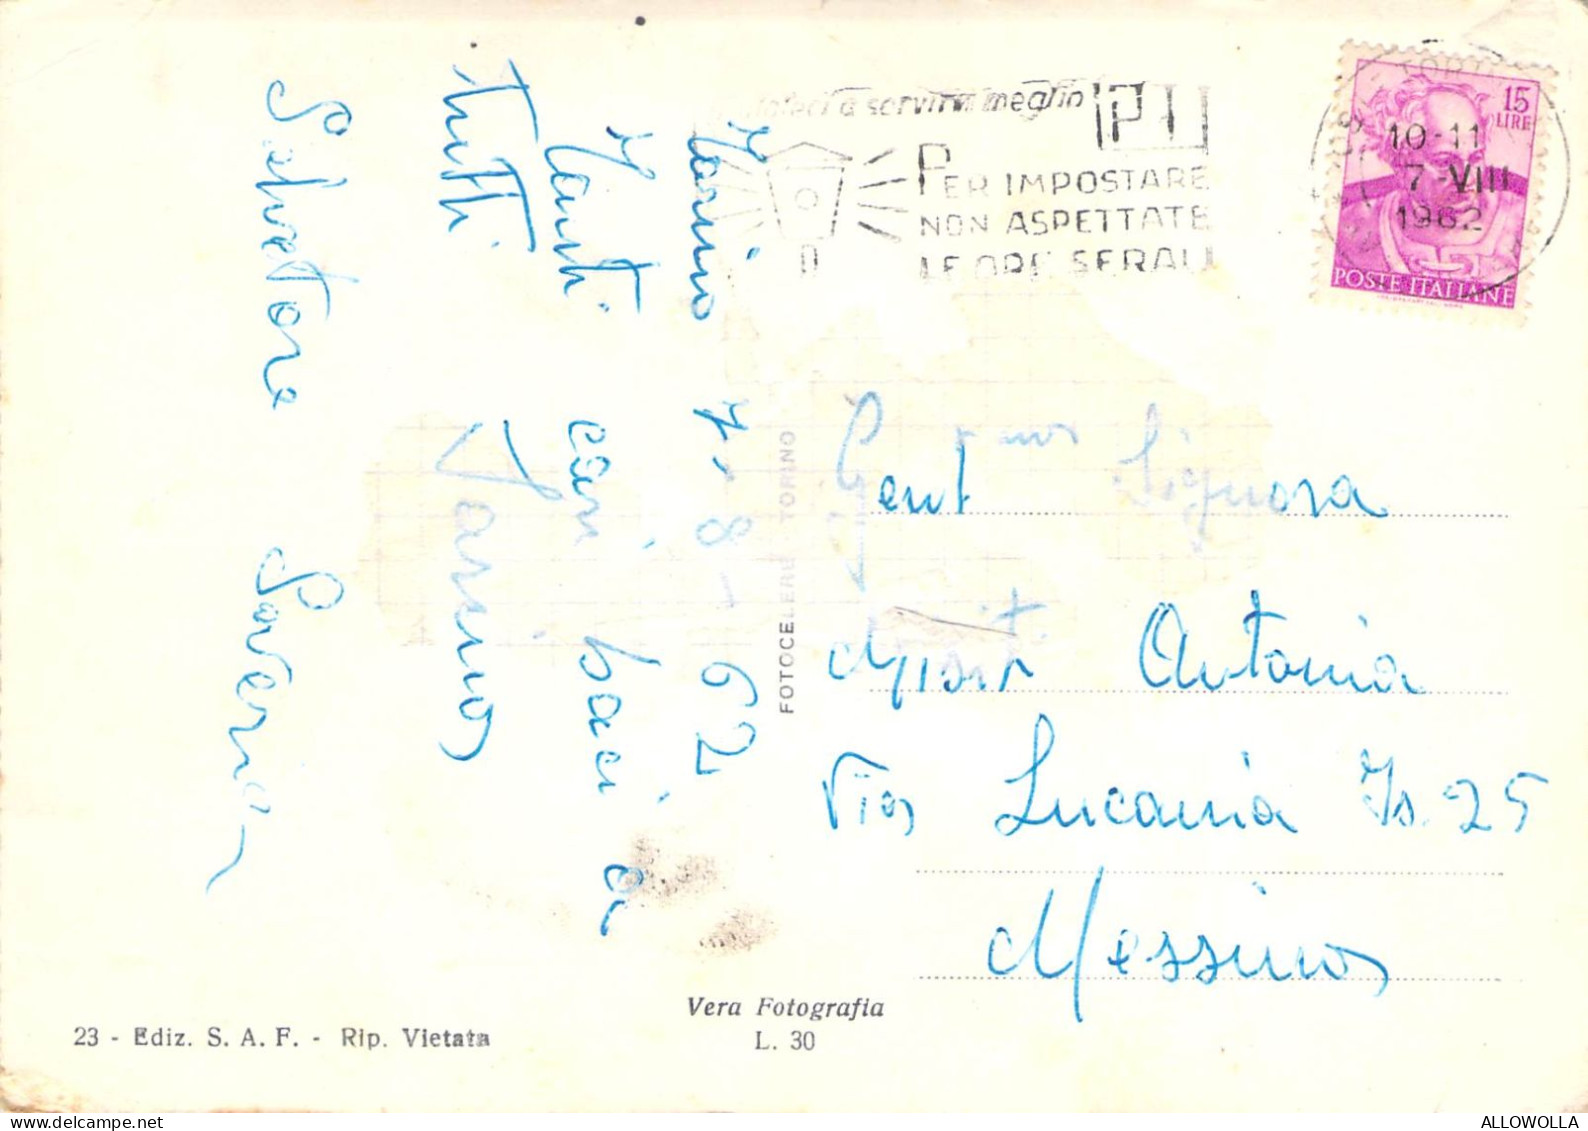 servirvi meglio PT
PER IMPOSTARE
NON ASPETTATE
LE ORE SERALI
10-11
7 VIII
1962
15
LIRE
POSTE ITALIANE
7-8-62
Tanti cari baci a
tutti
Salvatore Saveria
FOTOCELERE - TORINO
Gent Signora
Antonia
Via Lucania Is. 25
Messina
23 - Ediz. S. A. F. - Rip. Vietata
Vera Fotografia
L. 30
ALLOWOLLA